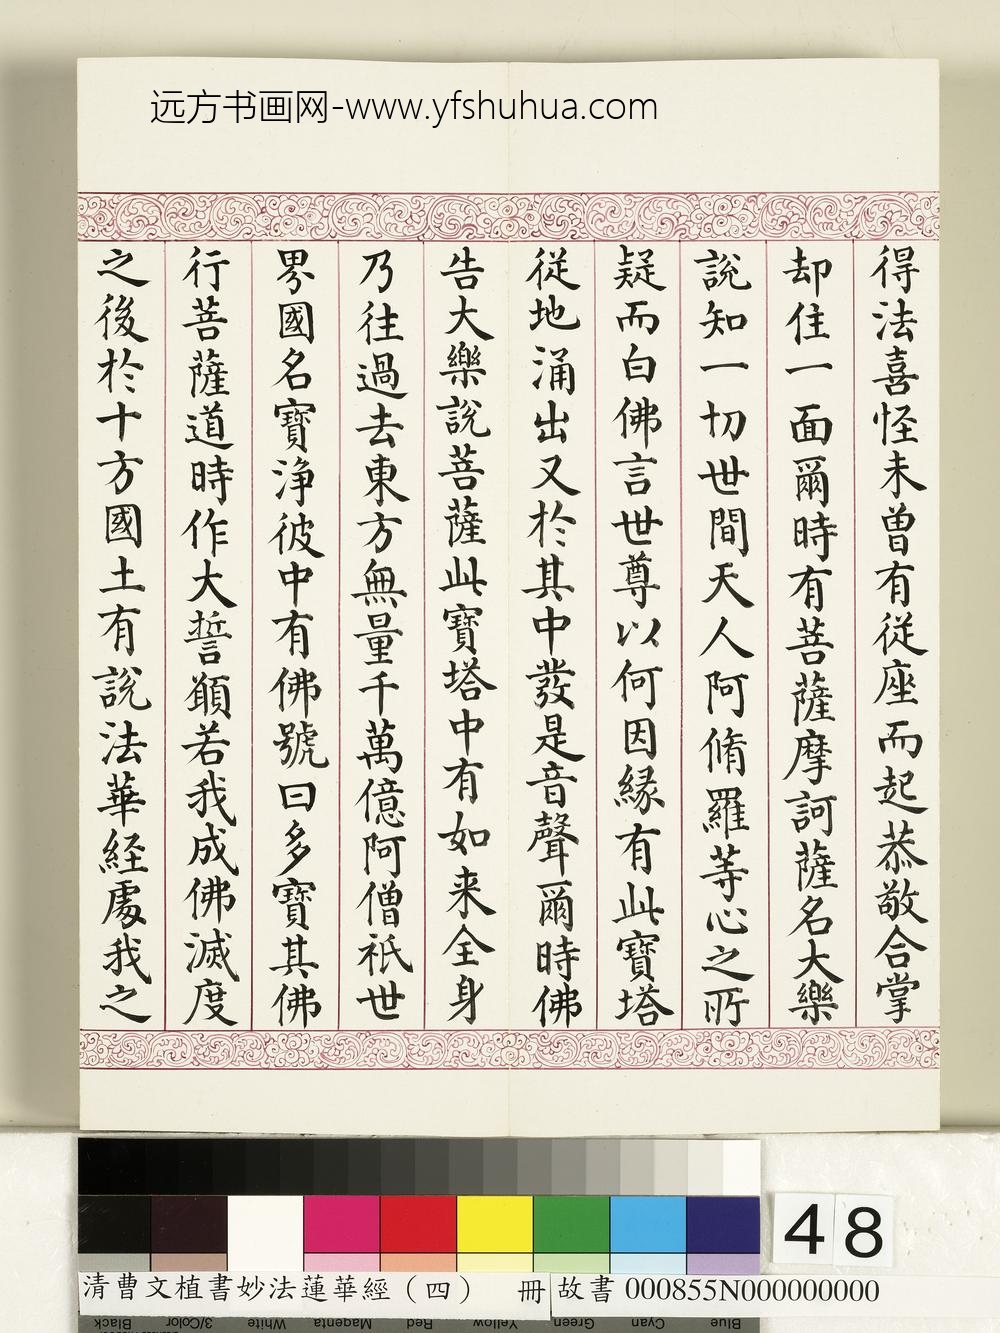 远方书画网-www.yfshuhua.com
得法喜怪未曾有從座而起恭敬合掌
却住一面爾時有菩薩摩訶薩名大樂
說知一切世間天人阿脩羅等心之所
疑而白佛言世尊以何因縁有此寶塔
從地涌出又於其中發是音聲爾時佛
告大樂說菩薩此寶塔中有如来全身
乃往過去東方無量千萬億阿僧祇世
界國名寶浄彼中有佛號曰多寶其佛
行菩薩道時作大誓願若我成佛滅度
之後於十方國土有說法華経處我之
48
清曹文植書妙法蓮華經（四） 冊
故書 000855N000000000
Black 3/Color White Magenta Red Yellow Green Cyan Blue